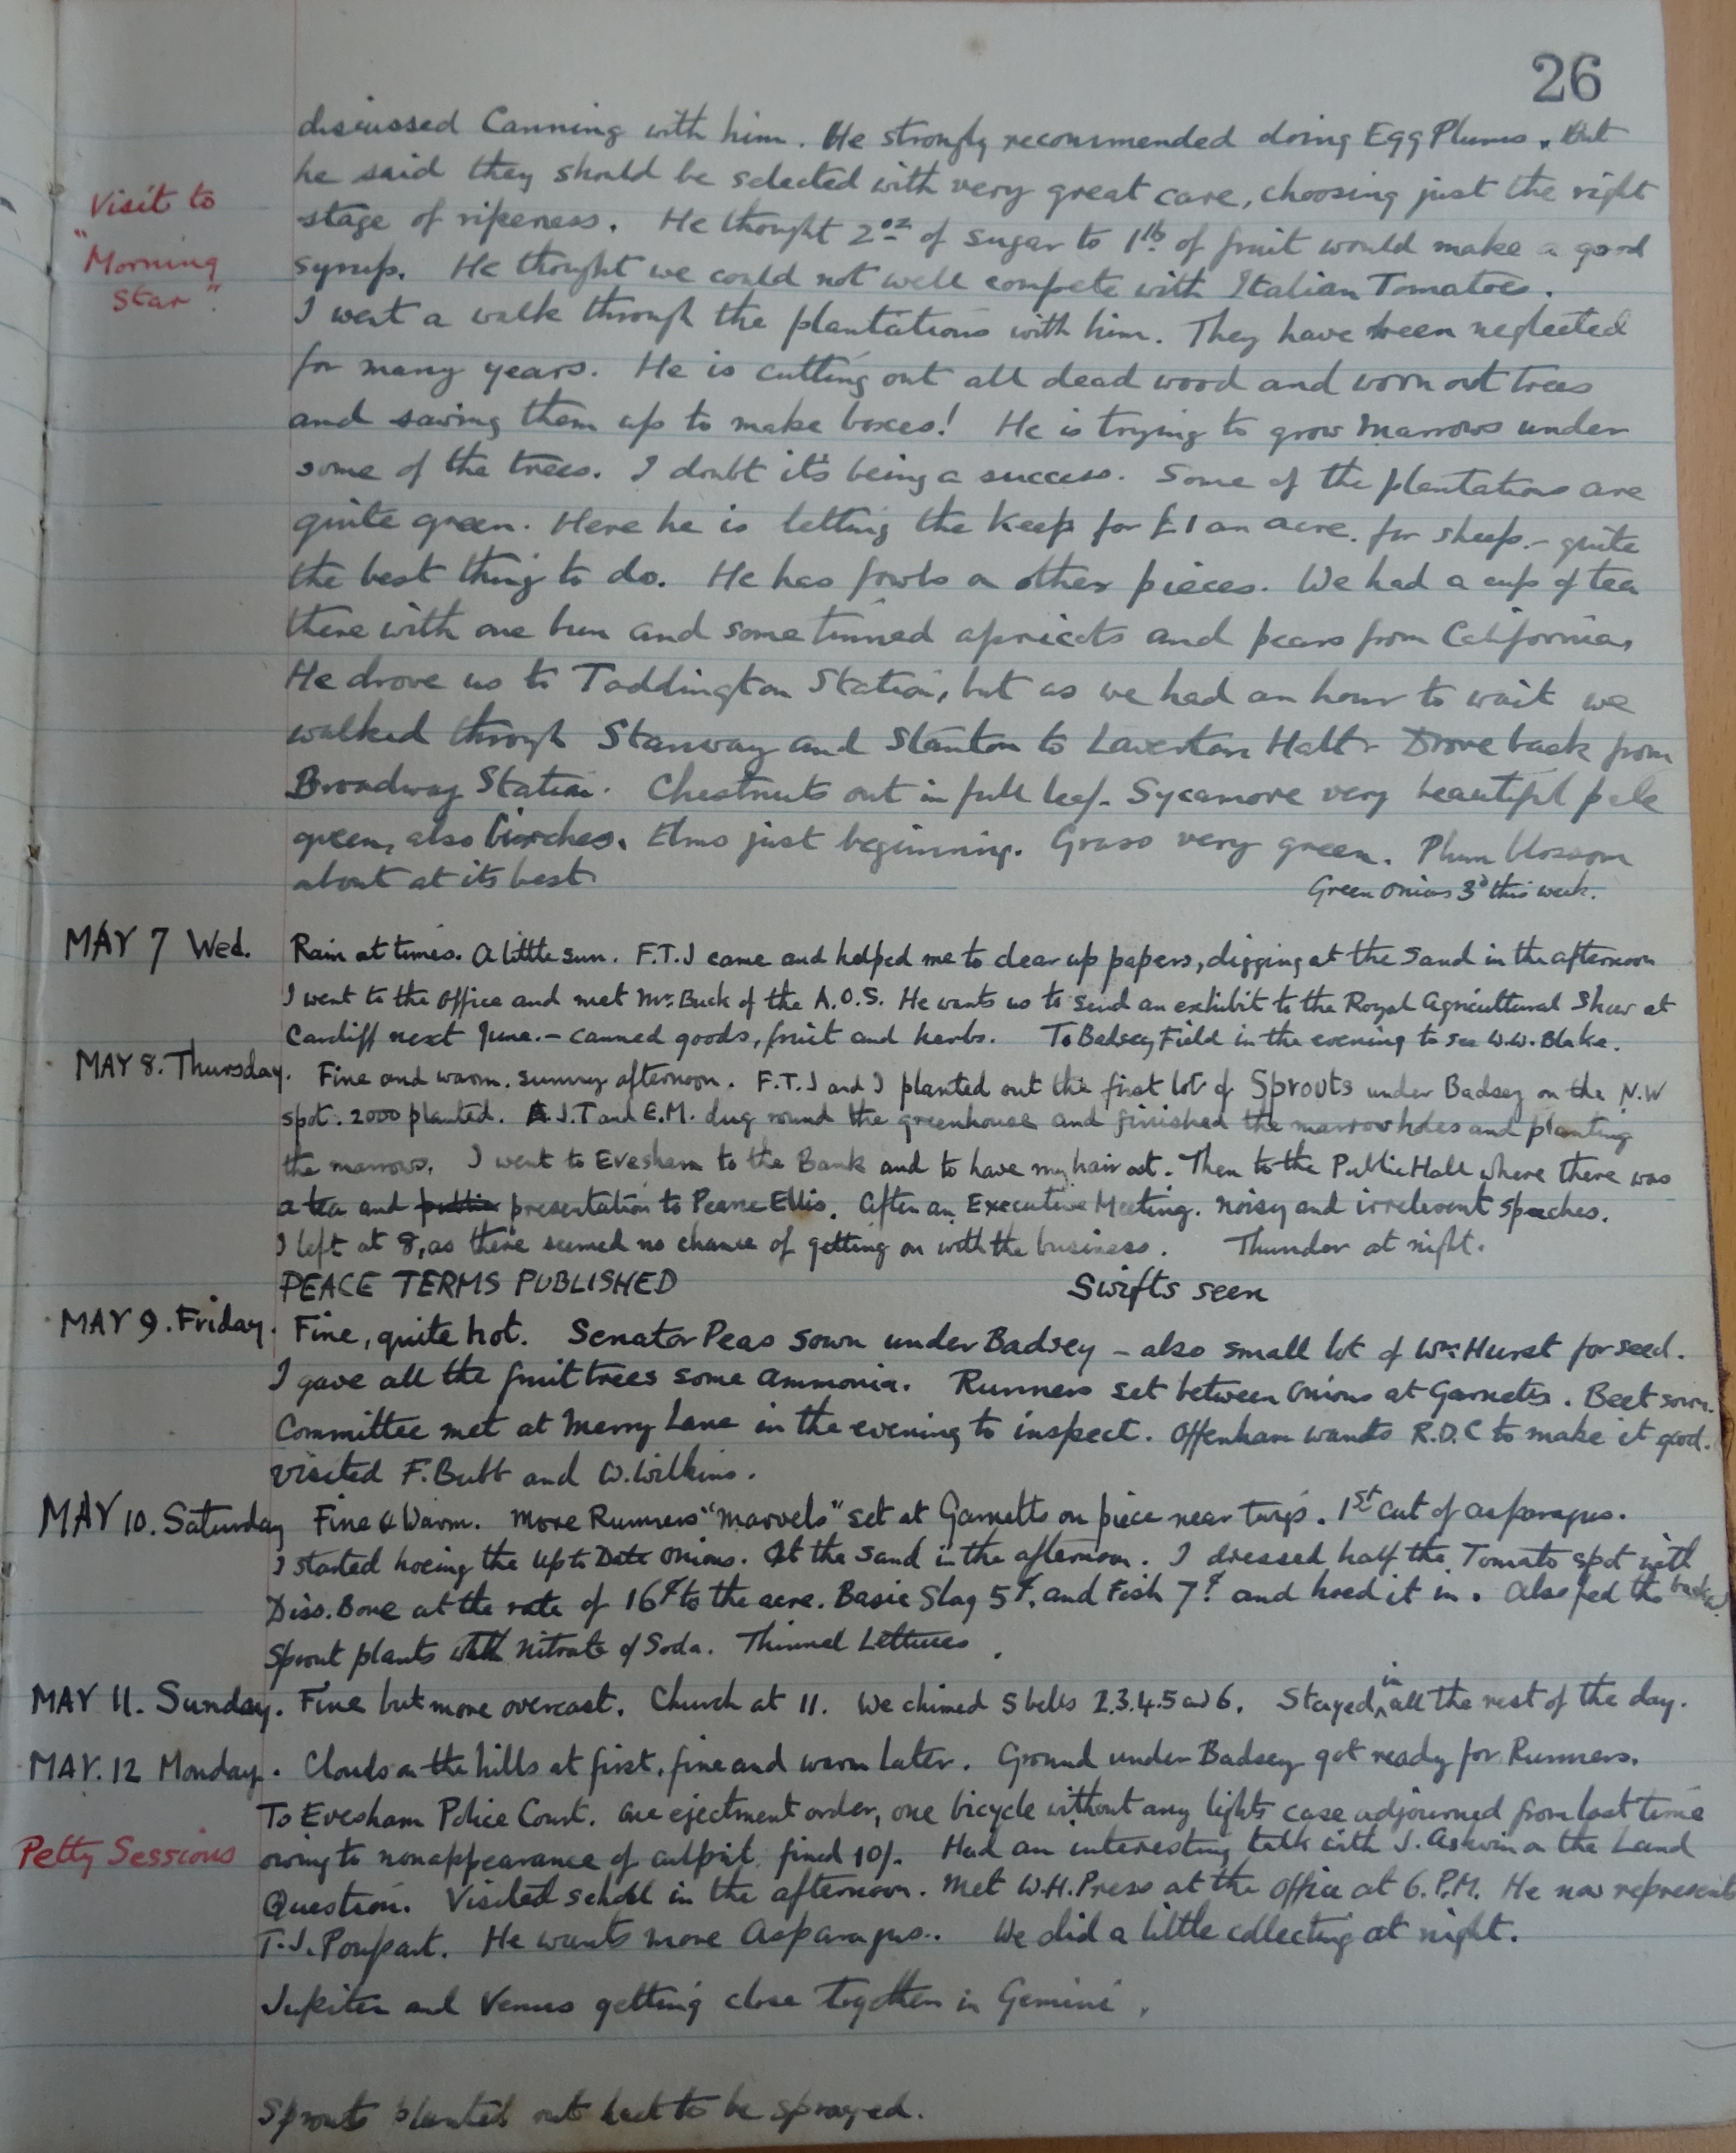 26
discussed Canning with him. He strongly recommended doing Egg Plums. But
he said they should be selected with very great care, choosing just the right
Visit to
"Morning
Star".
stage of ripeness. He thought 2oz of sugar to 1lb of fruit would make a good
syrup. He thought we could not well compete with Italian Tomatoes.
I went a walk through the plantations with him. They have been neglected
for many years. He is cutting out all dead wood and worn out trees
and sawing them up to make boxes! He is trying to grow Marrows under
some of the trees. I doubt it's being a success. Some of the plantations are
quite green. Here he is letting the Keep for £1 an acre. for sheep - quite
the best thing to do. He has fowls on other pieces. We had a cup of tea
there with one bun and some tinned apricots and pears from California.
He drove us to Toddington Station, but as we had an hour to wait we
walked through Stanway and Stanton to Laverton Halt. Drove back from
Broadway Station. Chestnuts out in full leaf. Sycamore very beautiful pale
green, also birches. Elms just beginning. Grass very green. Plum blossom
about at its best.
Green Onions 3d this week.
MAY 7 Wed. Rain at times. A little sun. F.T.J came and helped me to clear up papers, digging at the Sand in the afternoon
I went to the Office and met Mr. Buck of the A.O.S. He wants us to send an exhibit to the Royal Agricultural Show at
Cardiff next June. - canned goods, fruit and herbs. To Badsey Field in the evening to see W.W. Blake.
MAY 8. Thursday. Fine and warm. sunny afternoon. F.T.J and I planted out the first lot of Sprouts under Badsey on the N.W
spot. 2000 planted. A.J.T and E.M. dug round the greenhouse and finished the marrow holes and planting
the marrows. I went to Evesham to the Bank and to have my hair cut. Then to the Public Hall where there was
a tea and public presentation to Pearce Ellis. After an Executive Meeting. noisy and irrelevant speeches.
I left at 8, as there seemed no chance of getting on with the business. Thunder at night.
PEACE TERMS PUBLISHED Swifts seen
MAY 9. Friday. Fine, quite hot. Senator Peas sown under Badsey - also small lot of Wm. Hurst for seed.
I gave all the fruit trees some Ammonia. Runners set between Onions at Garnetts. Beet sown.
Committee met at Merry Lane in the evening to inspect. Offenham wants R.D.C to make it good.
Visited F. Butt and W. Wilkins.
MAY 10. Saturday Fine & Warm. More Runners "Marvels" set at Garnetts on piece near twigs. 1st cut of asparagus.
I started hoeing the Up to Date Onions. At the Sand in the afternoon. I dressed half the Tomato spot with
Diss. Bone at the rate of 16 to the acre. Basic Slag 5, and Fish 7 and hoed it in. Also fed the
Sprout plants with Nitrate of Soda. Thinned Lettuces.
MAY 11. Sunday. Fine but more overcast. Church at 11. We chimed 5 bells 2.3.4.5 and 6. Stayed in all the rest of the day.
MAY. 12 Monday. Clouds on the hills at first, fine and warm later. Ground under Badsey got ready for Runners.
To Evesham Police Court. One ejectment order, one bicycle without any lights case adjourned from last time
Petty Sessions
owing to nonappearance of culprit, fined 10/-. Had an interesting talk with J. Askwin on the Land
Question. Visited school in the afternoon. Met W.H. Press at the Office at 6. P.M. He now represents
T.J. Poupart. He wants more Asparagus. We did a little collecting at night.
Jupiter and Venus getting close together in Gemini.
Sprouts planted out had to be sprayed.